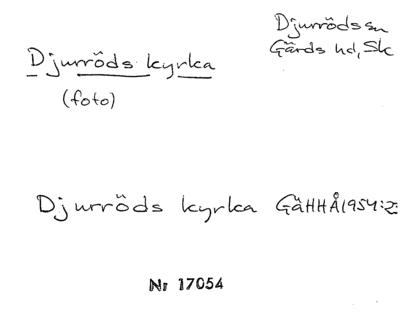 Djurröds sn
Gärds hd, Sk
Djurröds kyrka
(foto)
Djurröds kyrka GäHHÅ1954:2
Nr 17054